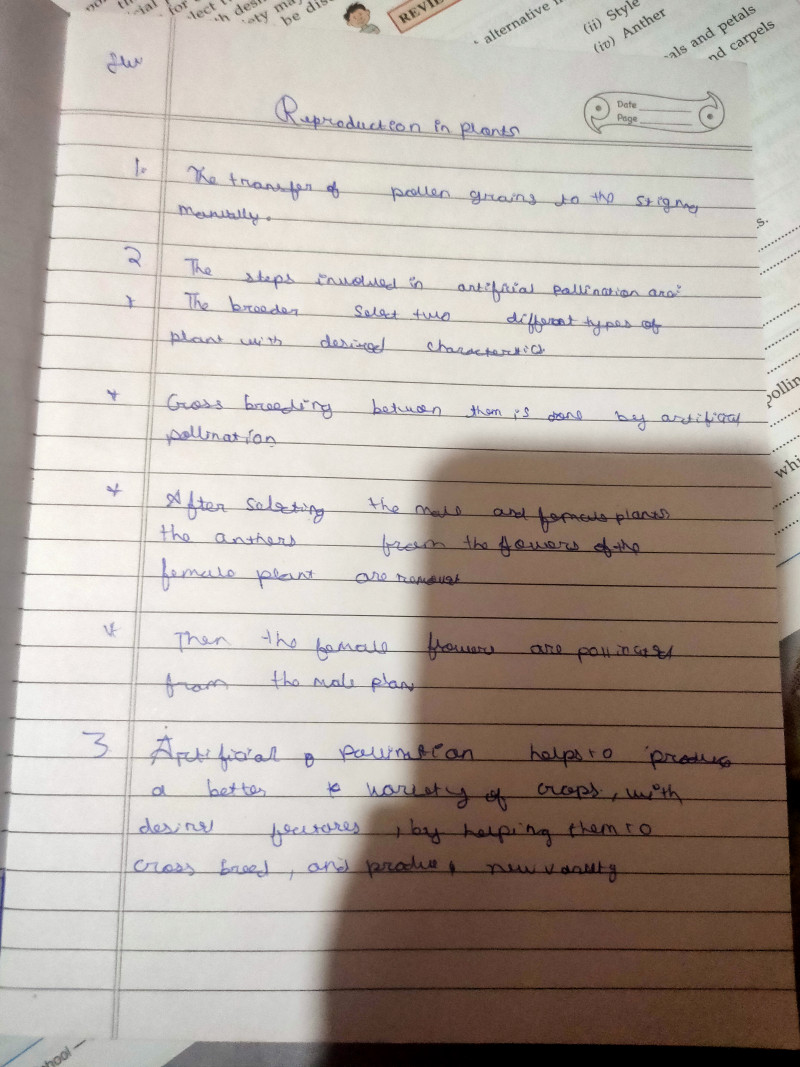 REVIE
alternative
(ii) Style
(iv) Anther
als and petals
nd carpels
Reproduction in plants
Date
Page
1. The transfer of pollen grains to the stigma
manually.
2 The steps involved in artificial pollination are:
* The breeder select two different types of
plant with desired characteristic
* Cross breeding between them is done by artificial
pollination
* After selecting the male and female plants
the anthers from the flowers of the
female plant are removed
* Then the female flowers are pollinated
from the male plan
3 Artificial pollination helps to produce
a better variety of crops, with
desire features, by helping them to
cross breed, and produce new variety
pollin
whi
hool